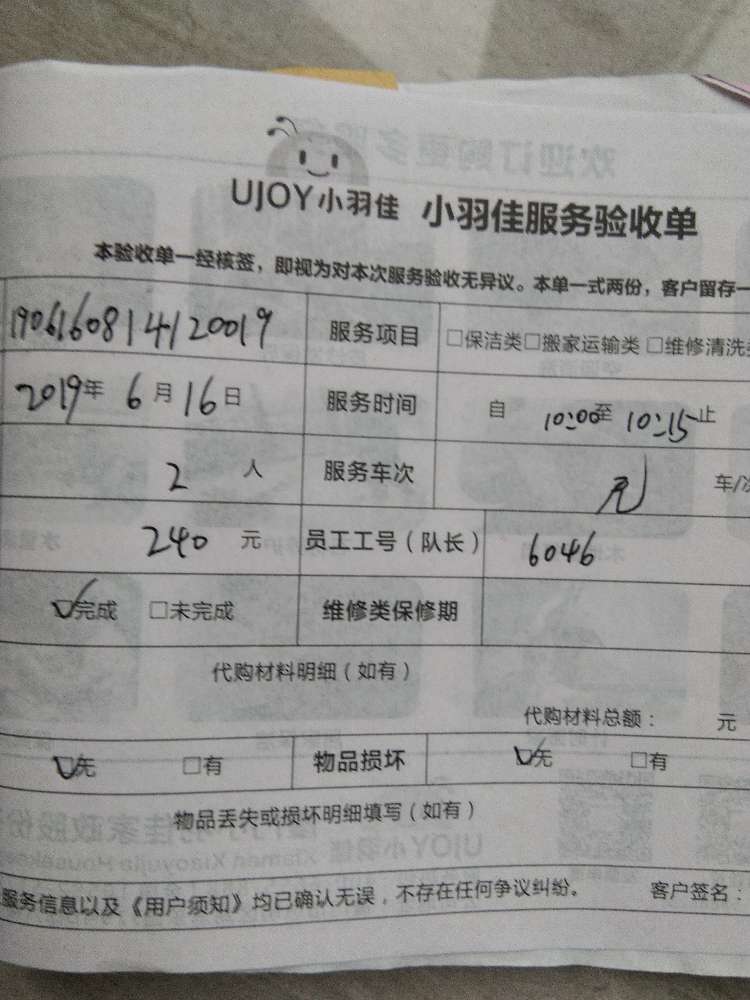 UJOY小羽佳 小羽佳服务验收单
本验收单一经核签，即视为对本次服务验收无异议。本单一式两份，客户留存一
1906160814120019 服务项目 □保洁类□搬家运输类 □维修清洗类
2019年 6月16日 服务时间 自 10:00至 10:15止
2 人 服务车次 车/次
240 元 员工工号（队长） 6046
☑完成 □未完成 维修类保修期
代购材料明细（如有）
代购材料总额： 元
☑无 □有 物品损坏 ☑无 □有
物品丢失或损坏明细填写（如有）
服务信息以及《用户须知》均已确认无误，不存在任何争议纠纷。 客户签名：